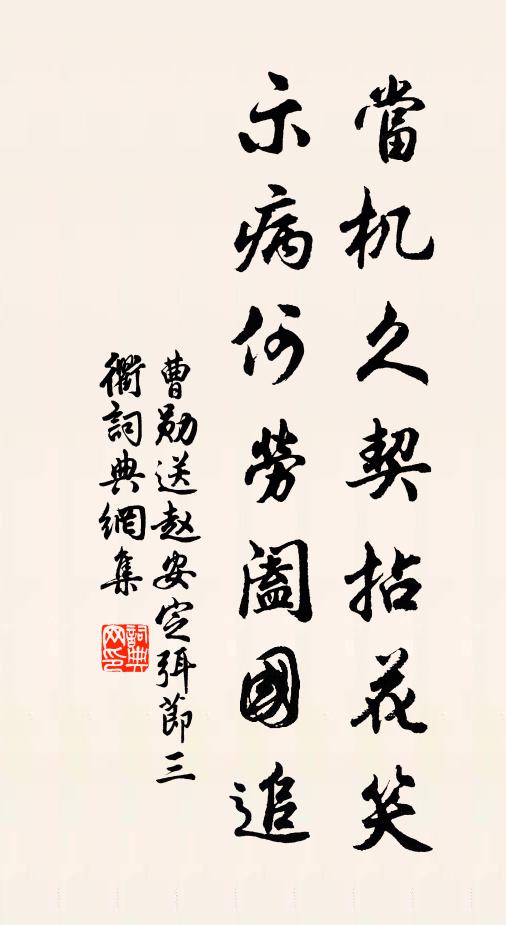 當机久契拈花笑
示病何勞闔國追
曹勛送赵安定弭節三
衢詞典網集
詞典
网印